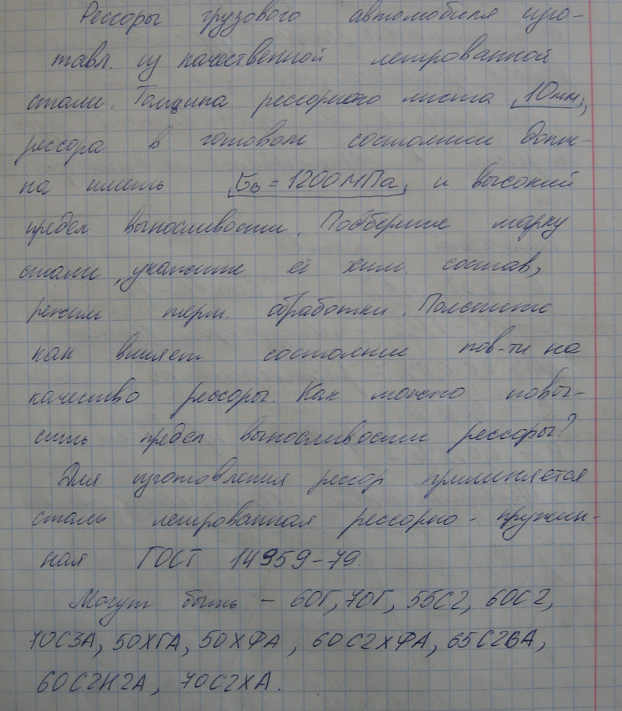 Рессоры грузового автомобиля изго-
тавл. из качественной легированной
стали. Толщина рессорного листа 10мм,
рессора в готовом состоянии долж-
на иметь σв = 1200 МПа, и высокий
предел выносливости. Подберите марку
стали, укажите её хим. состав,
режим терм. обработки. Поясните
как влияет состояние пов-ти на
качество рессоры. Как можно повы-
сить предел выносливости рессоры?
Для изготовления рессор применяется
сталь легированная рессорно-пружин-
ная ГОСТ 14959-79.
Могут быть - 60Г, 70Г, 55С2, 60С2,
70С3А, 50ХГА, 50ХФА, 60С2ХФА, 65С2ВА,
60С2Н2А, 70С2ХА.